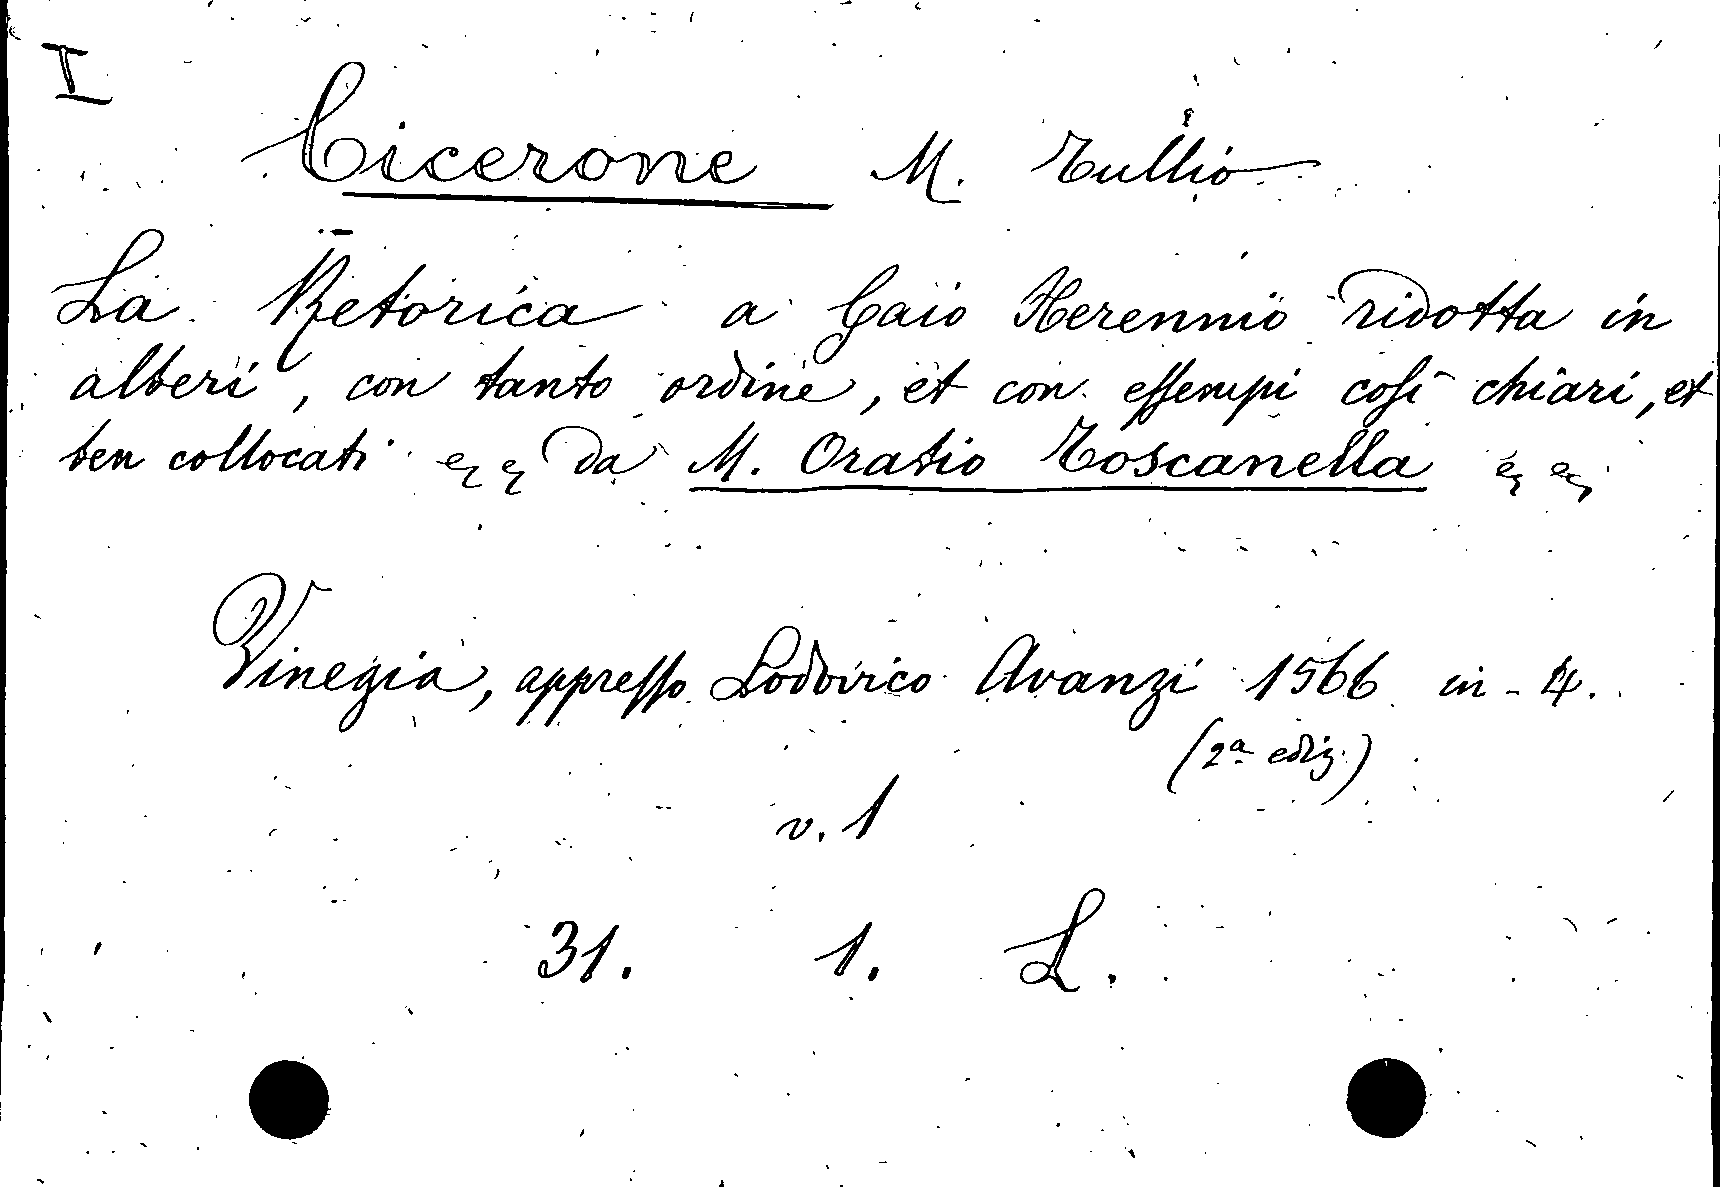 I
Cicerone M. Tullio
La Retorica a Gaio Herennio ridotta in
alberi, con tanto ordine, et con eſſempi coſi chiari, et
ben collocati ec ec da M. Oratio Toscanella ec ec.
Vinegia, appreſſo Lodovico Avanzi 1566 in - 4.
(2ª ediz.)
v. 1
31. 1. L.